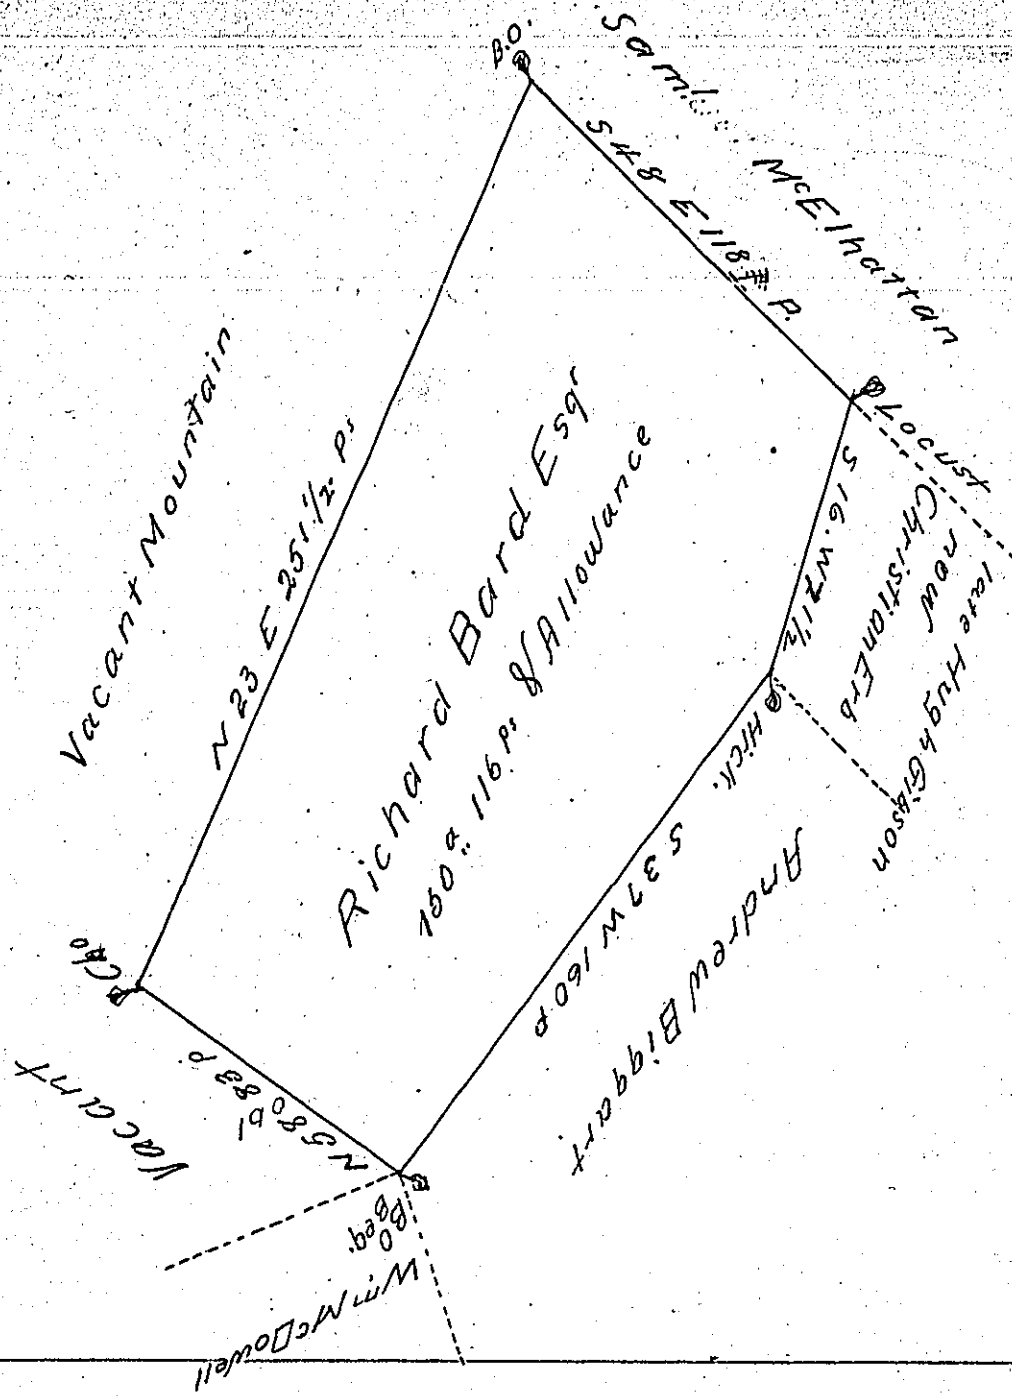 B.O.
Saml. McElhattan
S 48 E 118 P.
Locust
late Hugh Gibson
now
Christian Erb
S 16. W 71 1/2
Hick.
Vacant Mountain
N 23 E 251 1/2 Ps
Richard Bard Esqr
190 a.. 116 Ps &Allowance
S 37 W 160 P
Andrew Biggart
N 58 83 P.
Vacant
B O
Beg.
Wm McDowell